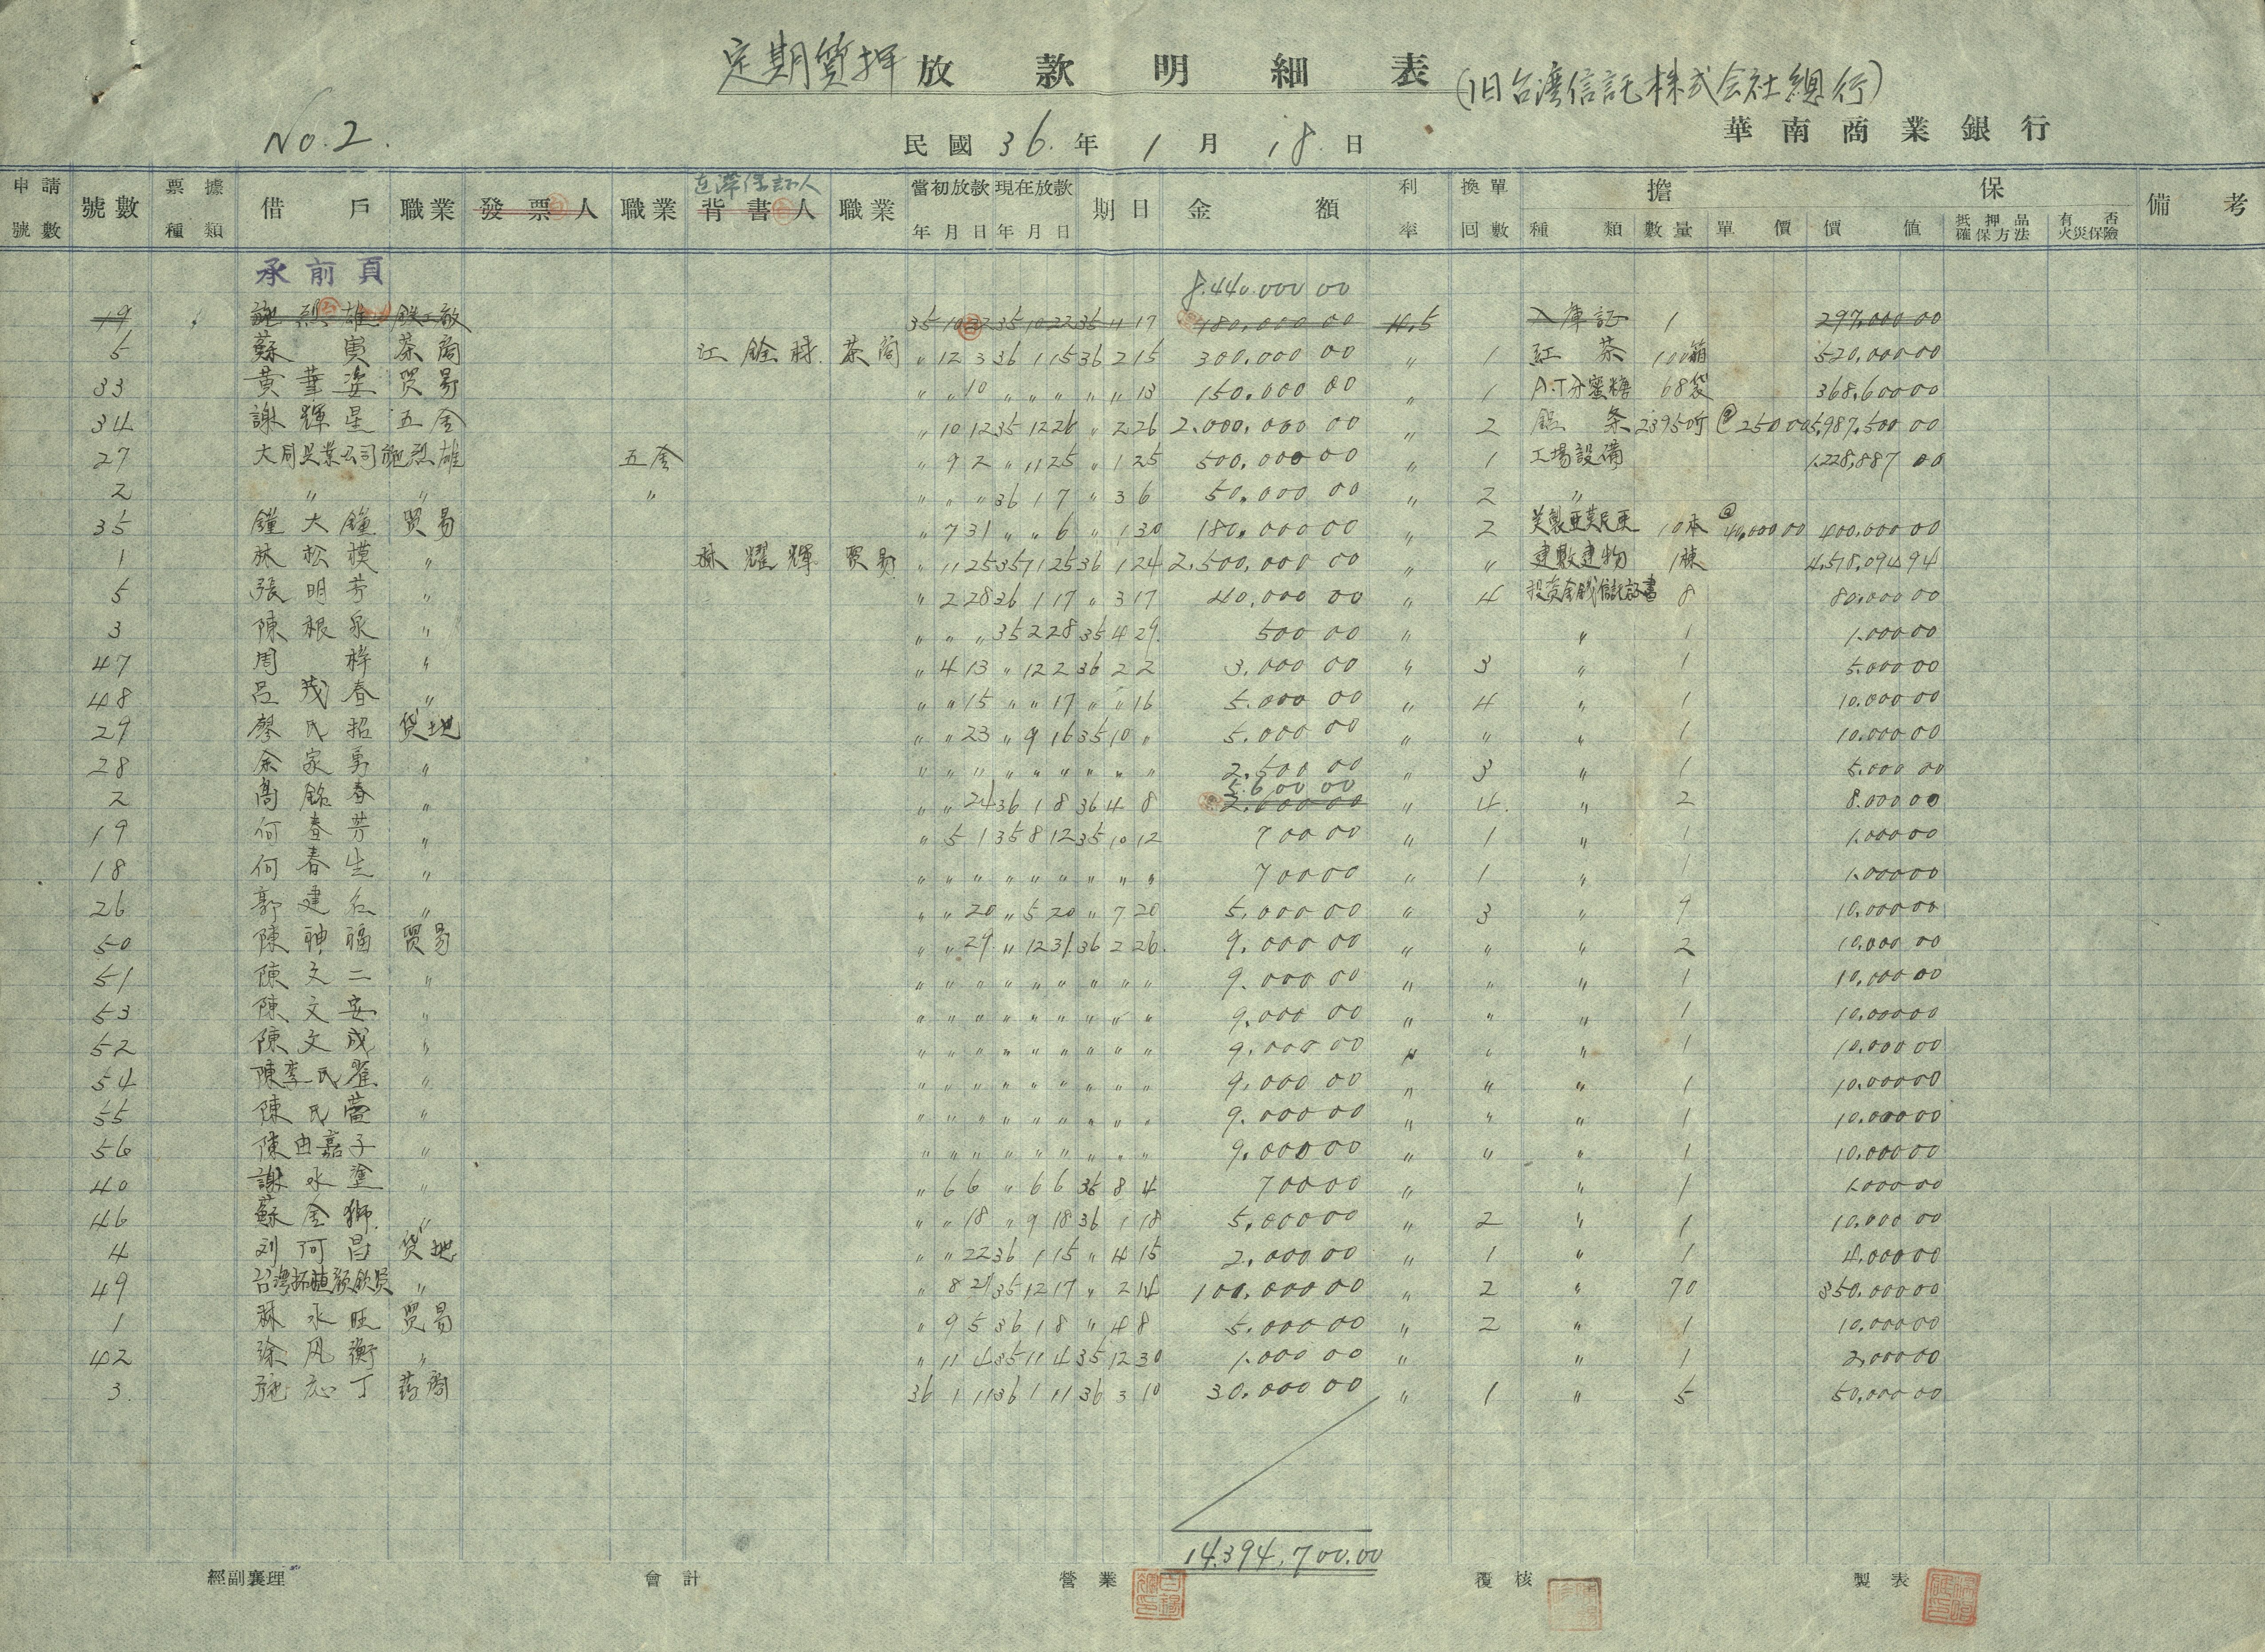 定期質押 放款明細表 (旧台湾信託株式会社總行)
No. 2.
民國 36. 年 1 月 18. 日
華南商業銀行
申請號數 號數 票據種類 借戶 職業 發票人 職業 背書人 職業 當初放款年月日 現在放款年月日 期日 金額 利率 換單回數 擔保 備考
種類 數量 單價 價值 抵押品確保方法 有否火災保險
承前頁 8.440.000 00
19 施烈雄 鉄工廠 35 10 22 35 10 22 36 4 17 480,000 00 4.5 入庫証 1 297,000 00
5 蘇寅 茶商 江銓 茶商 〃 12 3 36 1 15 36 2 15 300.000 00 〃 1 紅茶 100箱 520,000 00
33 黃華姿 貿易 〃 〃 10 〃 〃 〃 〃 〃 13 150.000 00 〃 1 A.T分蜜糖 68袋 368,600 00
34 謝輝星 五金 〃 10 12 35 12 26 〃 2 26 2.000,000 00 〃 2 条 23950斤 @250 00 5,987,500 00
27 大同興業公司施烈雄 五金 〃 9 2 〃 11 25 〃 1 25 500,000 00 〃 1 工場設備 1.228,887 00
2 〃 〃 〃 〃 〃 〃 36 1 7 〃 3 6 50.000 00 〃 2 〃
35 鐘大鐘 貿易 〃 7 31 〃 〃 6 〃 1 30 180.000 00 〃 2 10本 @40,000 00 400,000 00
1 林松模 〃 林耀輝 貿易 〃 11 25 35 11 25 36 1 24 2,500,000 00 〃 〃 建物 1棟 4,518,094 94
5 張明芳 〃 〃 2 28 36 1 17 〃 3 17 40,000 00 〃 4 投資金銭信託証書 8 80,000 00
3 陳根泉 〃 〃 〃 〃 35 2 28 35 4 29. 500 00 〃 〃 1 1.000 00
47 周 梓 〃 〃 4 13 〃 12 2 36 2 2 3.000 00 〃 3 〃 1 5.000 00
48 呂茂春 〃 〃 〃 15 〃 〃 17 〃 〃 16 5.000 00 〃 4 〃 1 10.000 00
29 廖氏招 貸地 〃 〃 23 〃 9 16 35 10 〃 5.000 00 〃 〃 〃 1 10.000 00
28 余家勇 〃 〃 〃 〃 〃 〃 〃 〃 〃 〃 2.500 00 〃 3 〃 1 5.000 00
5.600 00
2 高銘春 〃 〃 〃 24 36 1 8 36 4 8 2.600 00 〃 4. 〃 2 8.000 00
19 何春芳 〃 〃 5 1 35 8 12 35 10 12 700 00 〃 1 〃 1 1.000 00
18 何春生 〃 〃 〃 〃 〃 〃 〃 〃 〃 〃 700 00 〃 1 〃 1 1.000 00
26 郭建 〃 〃 〃 20 〃 5 20 〃 7 20 5,000 00 〃 3 〃 9 10,000 00
50 陳神福 貿易 〃 〃 29 〃 12 31 36 2 26. 9,000 00 〃 〃 〃 2 10,000 00
51 陳文二 〃 〃 〃 〃 〃 〃 〃 〃 〃 〃 9.000 00 〃 〃 〃 1 10,000 00
53 陳文安 〃 〃 〃 〃 〃 〃 〃 〃 〃 〃 9.000 00 〃 〃 〃 1 10,000 00
52 陳文成 〃 〃 〃 〃 〃 〃 〃 〃 〃 〃 9.000 00 〃 〃 〃 1 10.000 00
54 陳李氏 〃 〃 〃 〃 〃 〃 〃 〃 〃 〃 9.000 00 〃 〃 〃 1 10.000 00
55 陳氏 〃 〃 〃 〃 〃 〃 〃 〃 〃 〃 9.000 00 〃 〃 〃 1 10.000 00
56 陳由嘉子 〃 〃 〃 〃 〃 〃 〃 〃 〃 〃 9.000 00 〃 〃 〃 1 10.000 00
40 謝水塗 〃 〃 6 6 〃 6 6 35 8 4 700 00 〃 〃 1 1.000 00
46 蘇金獅 〃 〃 〃 18 〃 9 18 36 1 18 5,000 00 〃 2 〃 1 10,000 00
4 刘阿昌 貸地 〃 〃 22 36 1 15 〃 4 15 2,000 00 〃 1 〃 1 4,000 00
49 台湾拓殖 〃 〃 8 21 35 12 17 〃 2 14 100,000 00 〃 2 〃 70 350,000 00
1 林永旺 貿易 〃 9 5 36 1 8 〃 4 8 5.000 00 〃 2 〃 1 10,000 00
42 徐風衡 〃 〃 11 4 35 11 4 35 12 30 1.000 00 〃 〃 1 2,000 00
3. 施志丁 药商 36 1 11 36 1 11 36 3 10 30.000 00 〃 1 〃 5 50,000 00
14,394,700.00
經副襄理 會計 營業 覆核 製表